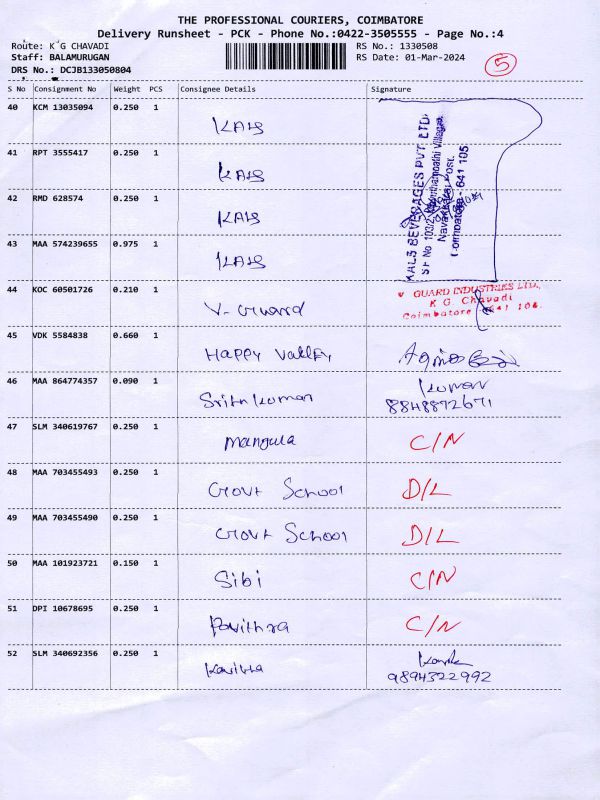 THE PROFESSIONAL COURIERS, COIMBATORE
Delivery Runsheet - PCK - Phone No.:0422-3505555 - Page No.:4
Route: K G CHAVADI
RS No.: 1330508
Staff: BALAMURUGAN
RS Date: 01-Mar-2024
DRS No.: DCJB133050804
5
S No Consignment No Weight PCS Consignee Details Signature
40 KCM 13035094 0.250 1 KALS
41 RPT 3555417 0.250 1 KALS
42 RMD 628574 0.250 1 KALS
43 MAA 574239655 0.975 1 KALS
KALS BEVERAGES PVT. LTD.
SF No 103/2,
Coimbatore - 641 105
44 KOC 60501726 0.210 1 V-Guard
V GUARD INDUSTRIES LTD.,
K G Chavadi
Coimbatore 641 10
45 VDK 5584838 0.660 1 Happy Valley
46 MAA 864774357 0.090 1 Kumar
8848872671
47 SLM 340619767 0.250 1 Mangula C/N
48 MAA 703455493 0.250 1 Govt School D/L
49 MAA 703455490 0.250 1 Govt School D/L
50 MAA 101923721 0.150 1 Sibi C/N
51 DPI 10678695 0.250 1 Pavithra C/N
52 SLM 340692356 0.250 1
9894322992